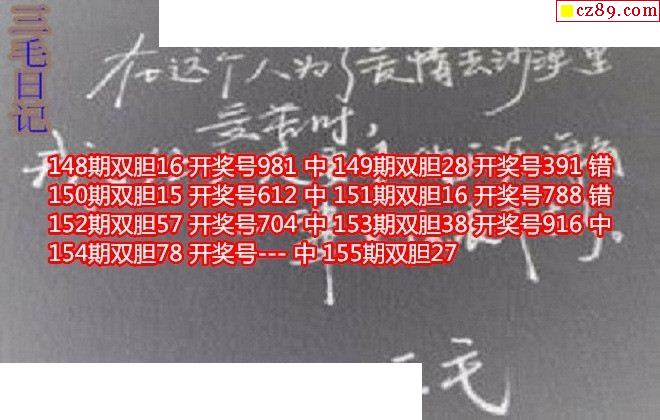 cz89.com
三毛日记
在这个人为了爱情去沙漠里
受苦时，
148期双胆16 开奖号981 中 149期双胆28 开奖号391 错
150期双胆15 开奖号612 中 151期双胆16 开奖号788 错
152期双胆57 开奖号704 中 153期双胆38 开奖号916 中
154期双胆78 开奖号--- 中 155期双胆27
三毛